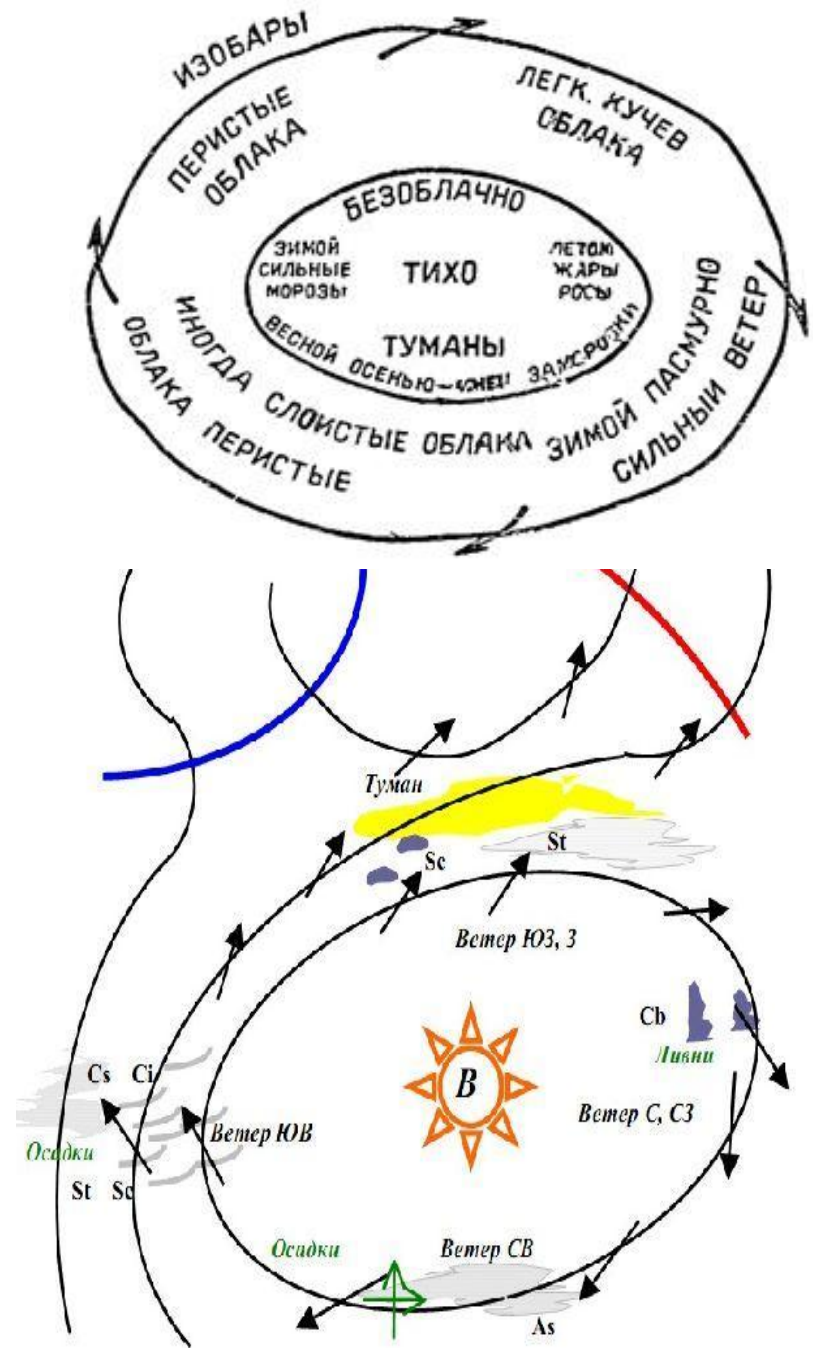 ИЗОБАРЫ
ПЕРИСТЫЕ
ОБЛАКА
ЛЕГК. КУЧЕВ
ОБЛАКА
БЕЗОБЛАЧНО
ЗИМОЙ
СИЛЬНЫЕ
МОРОЗЫ
ТИХО
ЛЕТОМ
ЖАРЫ
РОСЫ
ТУМАНЫ
ВЕСНОЙ ОСЕНЬЮ ЗАМОРОЗКИ
ИНОГДА СЛОИСТЫЕ ОБЛАКА
ЗИМОЙ ПАСМУРНО
ОБЛАКА ПЕРИСТЫЕ
СИЛЬНЫЙ ВЕТЕР
Туман
St
Sc
Ветер ЮЗ, З
Cb
Ливни
Cs Ci
В
Ветер С, СЗ
Ветер ЮВ
Осадки
St Sc
Осадки
Ветер СВ
As